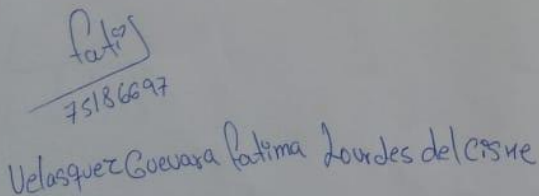 fatis
75186697
Velasquez Guevara fatima Lourdes del cisne